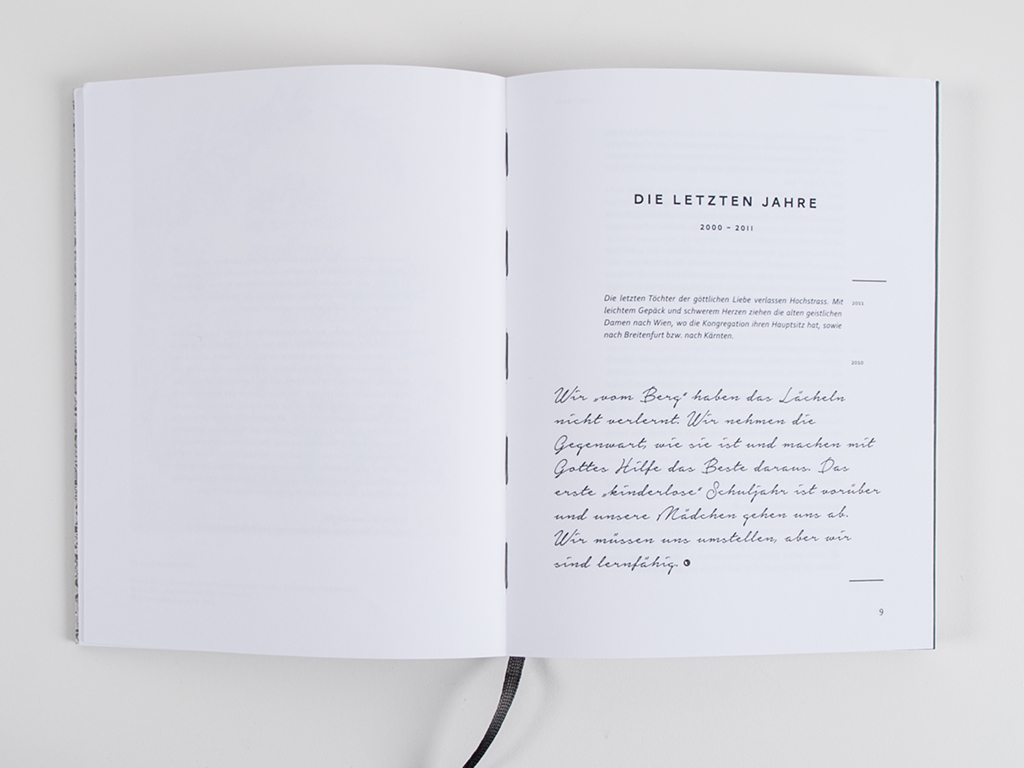 DIE LETZTEN JAHRE
2000 – 2011
Die letzten Töchter der göttlichen Liebe verlassen Hochstrass. Mit
leichtem Gepäck und schwerem Herzen ziehen die alten geistlichen
Damen nach Wien, wo die Kongregation ihren Hauptsitz hat, sowie
nach Breitenfurt bzw. nach Kärnten.
2011
2010
Wir „vom Berg“ haben das Lächeln
nicht verlernt. Wir nehmen die
Gegenwart, wie sie ist und machen mit
Gottes Hilfe das Beste daraus. Das
erste „kinderlose“ Schuljahr ist vorüber
und unsere Mädchen gehen uns ab.
Wir müssen uns umstellen, aber wir
sind lernfähig.
9